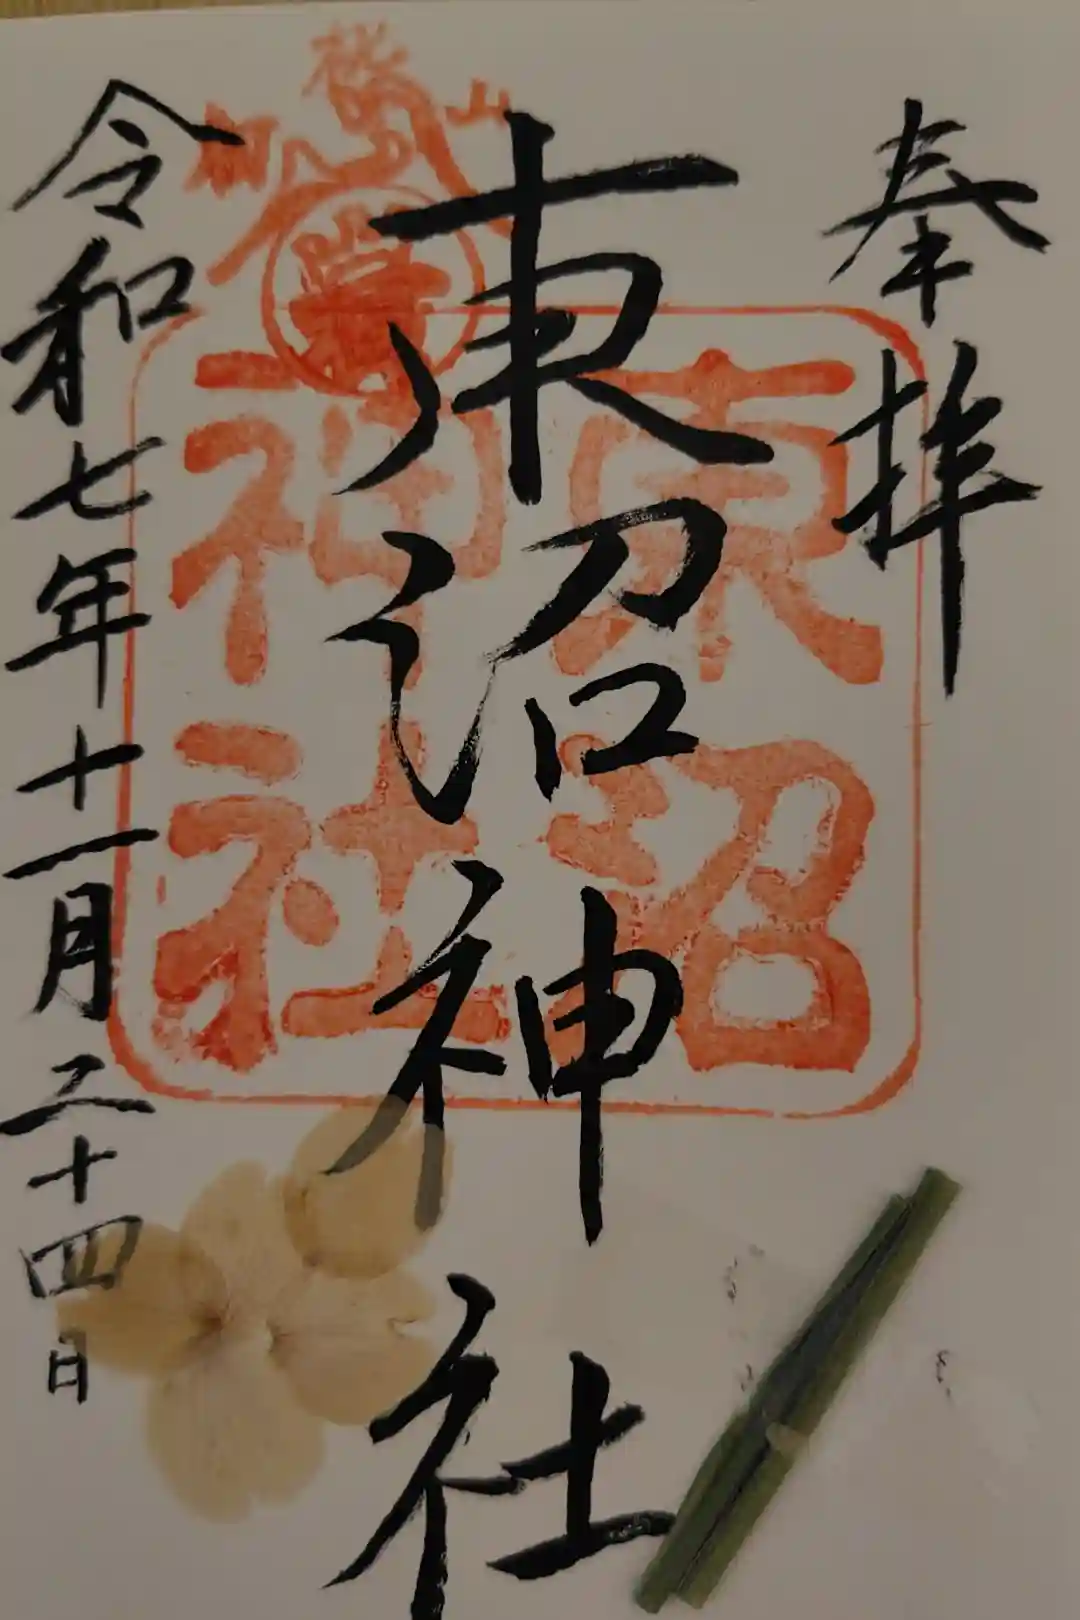 奉拝
東沼神社
東沼
神社
令和七年十一月二十四日